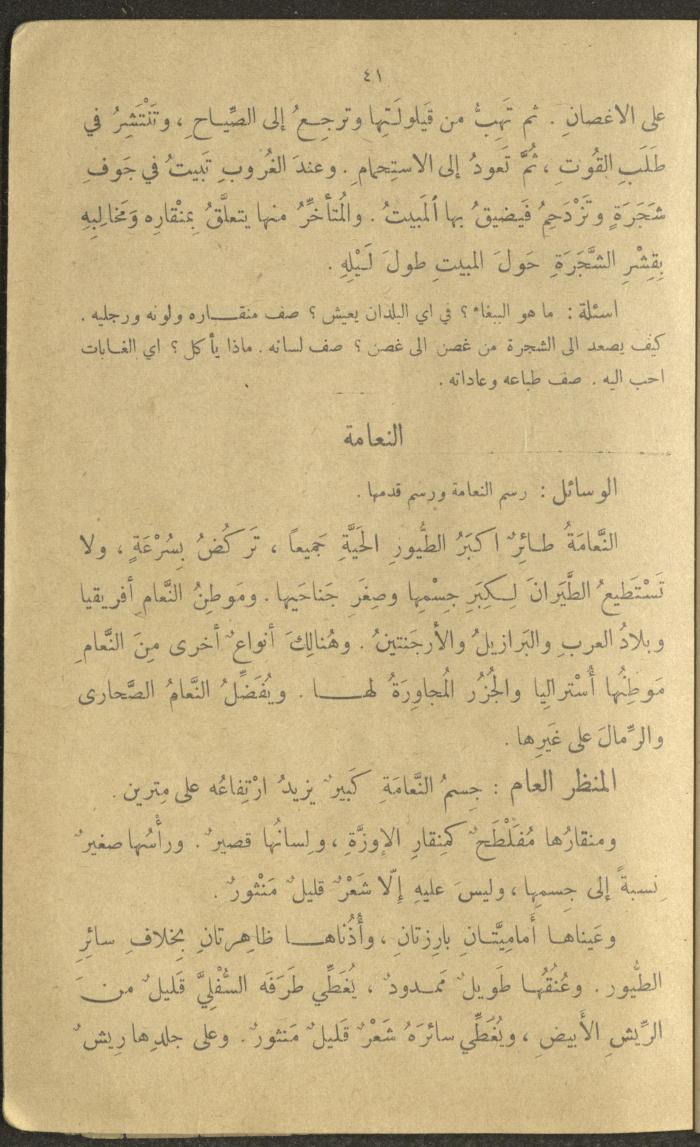 ٤١
على الاغصانِ . ثم تَهِبُّ من قَيلولَتِها وترجِعُ إلى الصِّياحِ ، وتَنْتَشِرُ في
طَلَبِ القُوتِ ، ثُمَّ تَعودُ إلى الاستِحمامِ . وعندَ الغُروبِ تَبيتُ في جَوفِ
شَجَرَةٍ وتَزْدَحِمُ فَيَضيقُ بها ٱلْمَبيتُ . والمُتأَخّرُ منها يتعلَّقُ بِمنْقارِه وَمَخالِبِهِ
بِقِشْرِ الشَّجَرَةِ حَولَ المبيتِ طولَ لَيْلِهِ .
اسئلة : ما هو الببغاء ؟ في اي البلدان يعيش ؟ صف منقاره ولونه ورجليه .
كيف يصعد الى الشجرة من غصن الى غصن ؟ صف لسانه . ماذا يأكل ؟ اي الغابات
احب اليه . صف طباعه وعاداته .
النعامة
الوسائل : رسم النعامة ورسم قدمها .
النَّعامَةُ طائِرٌ اكبَرُ الطُّيورِ الحَيَّةِ جَميعاً ، تَركُضُ بِسُرْعَةٍ ، ولا
تَسْتَطيعُ الطَّيَرانَ لِكِبَرِ جِسْمِها وصِغَرِ جَناحَيها . ومَوطِنُ النَّعامِ أفريقيا
وبلادُ العربِ والبَرازيلُ والأرجَنتينُ . وهُنالِكَ أنواعٌ أخرى مِنَ النَّعامِ
مَوطِنُها أُسْتراليا والجُزُر المُجاوِرَةُ لها . ويُفَضِّلُ النَّعامُ الصَّحارى
والرِّمالَ على غَيرِها .
المنظر العام : جِسمُ النَّعامَةِ كَبيرٌ يزيدُ ارْتِفاعُه على مِترين .
ومنقارُها مُفَلْطَحٌ كَمِنقارِ الإوزَّةِ ، ولِسانُها قصيرٌ . ورأْسُها صغيرٌ
نِسبةً إلى جِسمِها ، وليسَ عليهِ إلّا شَعْرٌ قليلٌ مَنْثورٌ .
وعَيناها أَمامِيَّتانِ بارِزتانِ ، وأُذُناها ظاهِرتانِ بِخلافِ سائرِ
الطُّيور . وعُنُقُها طَويلٌ مَمدودٌ ، يُغَطِّي طَرَفَه السُّفْليَّ قَليلٌ منَ
الرِّيشِ الأَبيضِ ، ويُغَطِّي سائرَهُ شَعْرٌ قَليلٌ مَنثورٌ . وعلى جلدِها رِيشٌ